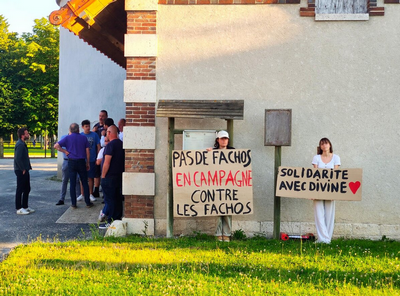 PAS DE FACHOS
EN CAMPAGNE
CONTRE
LES FACHOS
SOLIDARITE
AVEC DIVINE